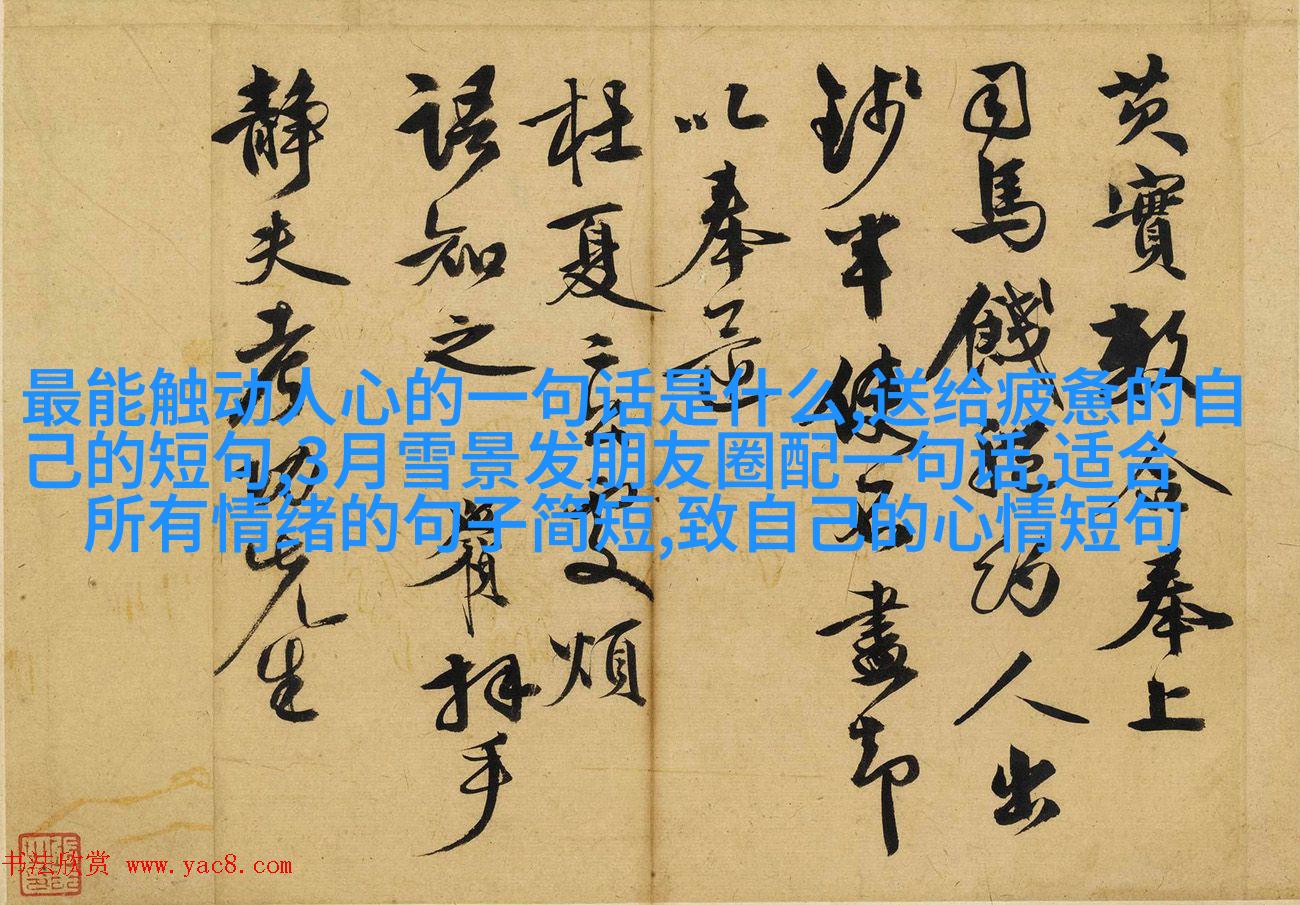 最能触动人心的一句话是什么,送给疲惫的自
己的短句,3月雪景发朋友圈配一句话,适合
所有情绪的句子简短,致自己的心情短句
芡實奉上
司馬餞约人出
錢半使不盡却
以奉
枉夏煩
語知之拜手
靜夫先生
书法欣赏 www.yac8.com